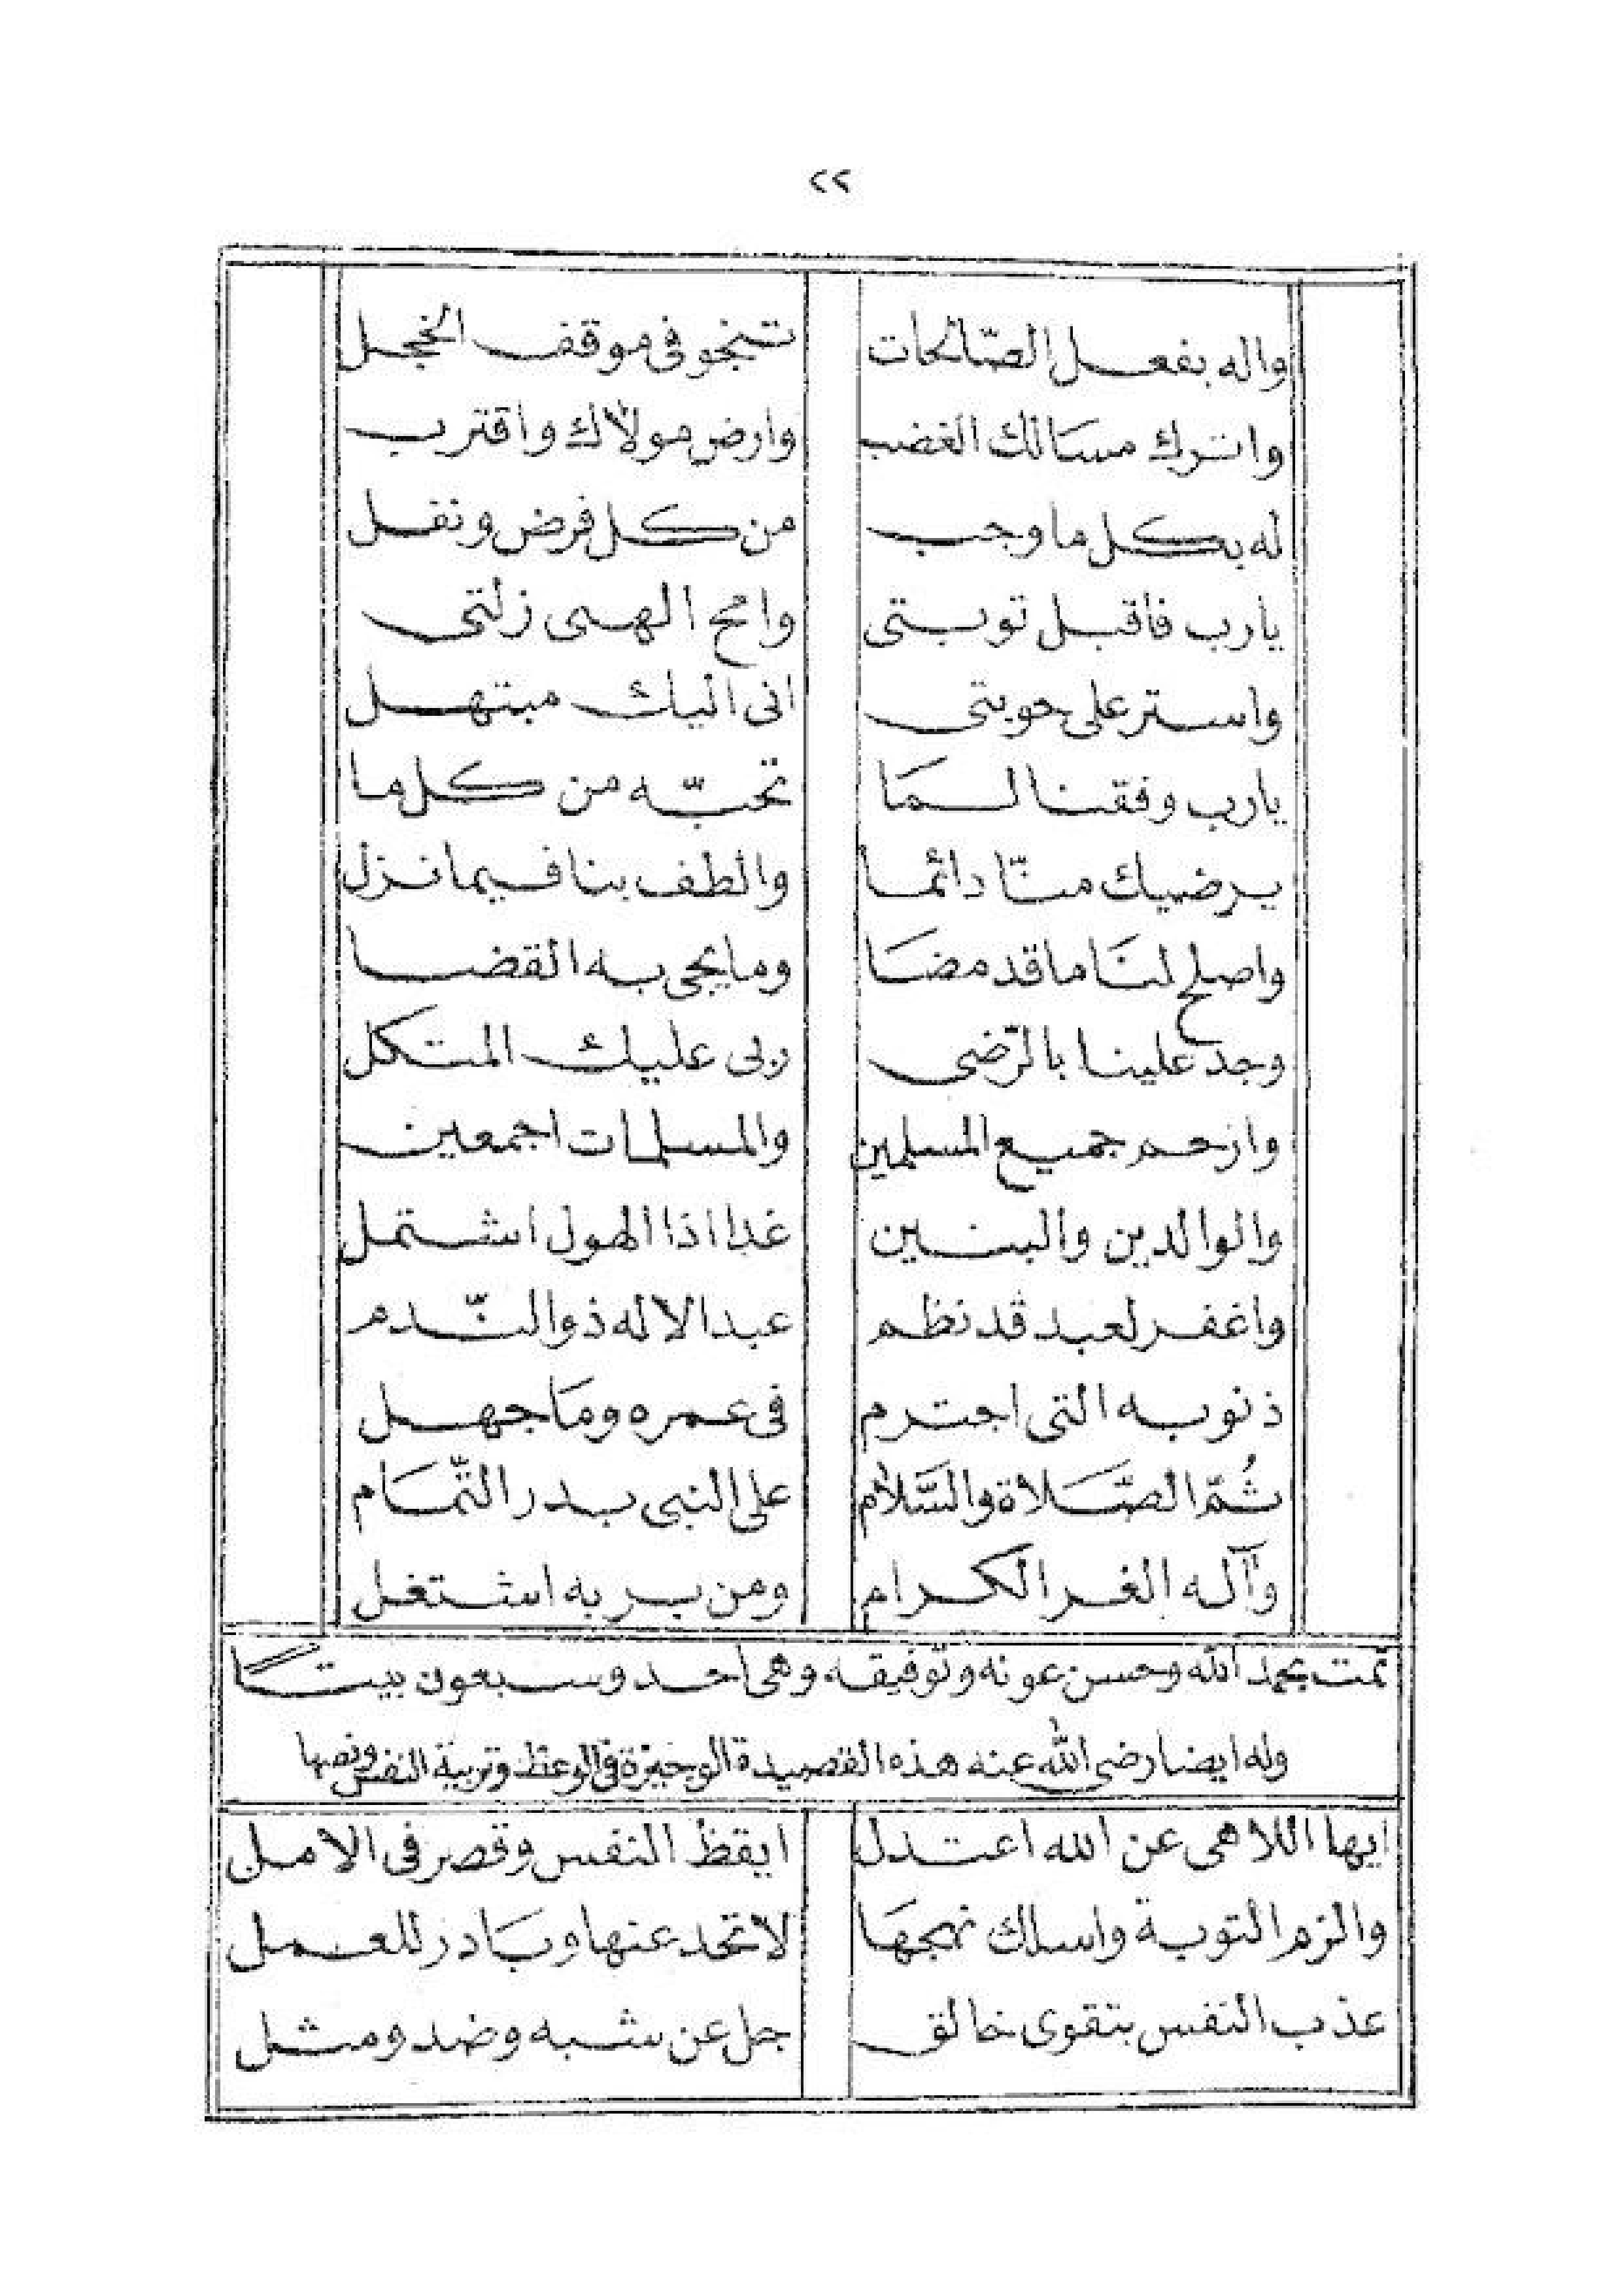 ٢٢
واله بفعل الصّالحات تنجو فى موقف الخجل
واترك مسالك الغضب وارض مولاك واقترب
له بكل ما وجب من كل فرض ونفل
يارب فاقبل توبتى وامح الهى زلتى
واستر على حوبتى انى اليك مبتهل
يارب وفقنا لمَا تحبّه من كل ما
يرضيك منّا دائما والطف بنا فيما نزل
واصلح لنَا ما قد مضَا وما يجى به القضا
وجد علينا بالرّضى ربى عليك المتكل
وارحم جميع المسلمين والمسلمات اجمعين
والوالدين والبنين غدا اذا الهول اشتمل
واغفر لعبد قد نظم عبد الاله ذو النّدم
ذنوبه التى اجترم فى عمره ومَا جهل
ثُمّ الصّلاة والسَّلام على النبى بدر التّمَام
وآله الغر الكرام ومن بر به اشتغل
تمت بحمد الله وحسن عونه وتوفيقه وهى احد وسبعون بيتًا
وله ايضا رضى الله عنه هذه القصيدة الوجيزة فى الوعظ وتربية النفس ونصها
ايها اللاهى عن الله اعتدل ايقظ النفس وقصر فى الامل
والزم التوبة واسلك نهجهَا لا تحد عنها وبَادر للعمل
عذب النفس بتقوى خالق جل عن شبه وضد ومثل